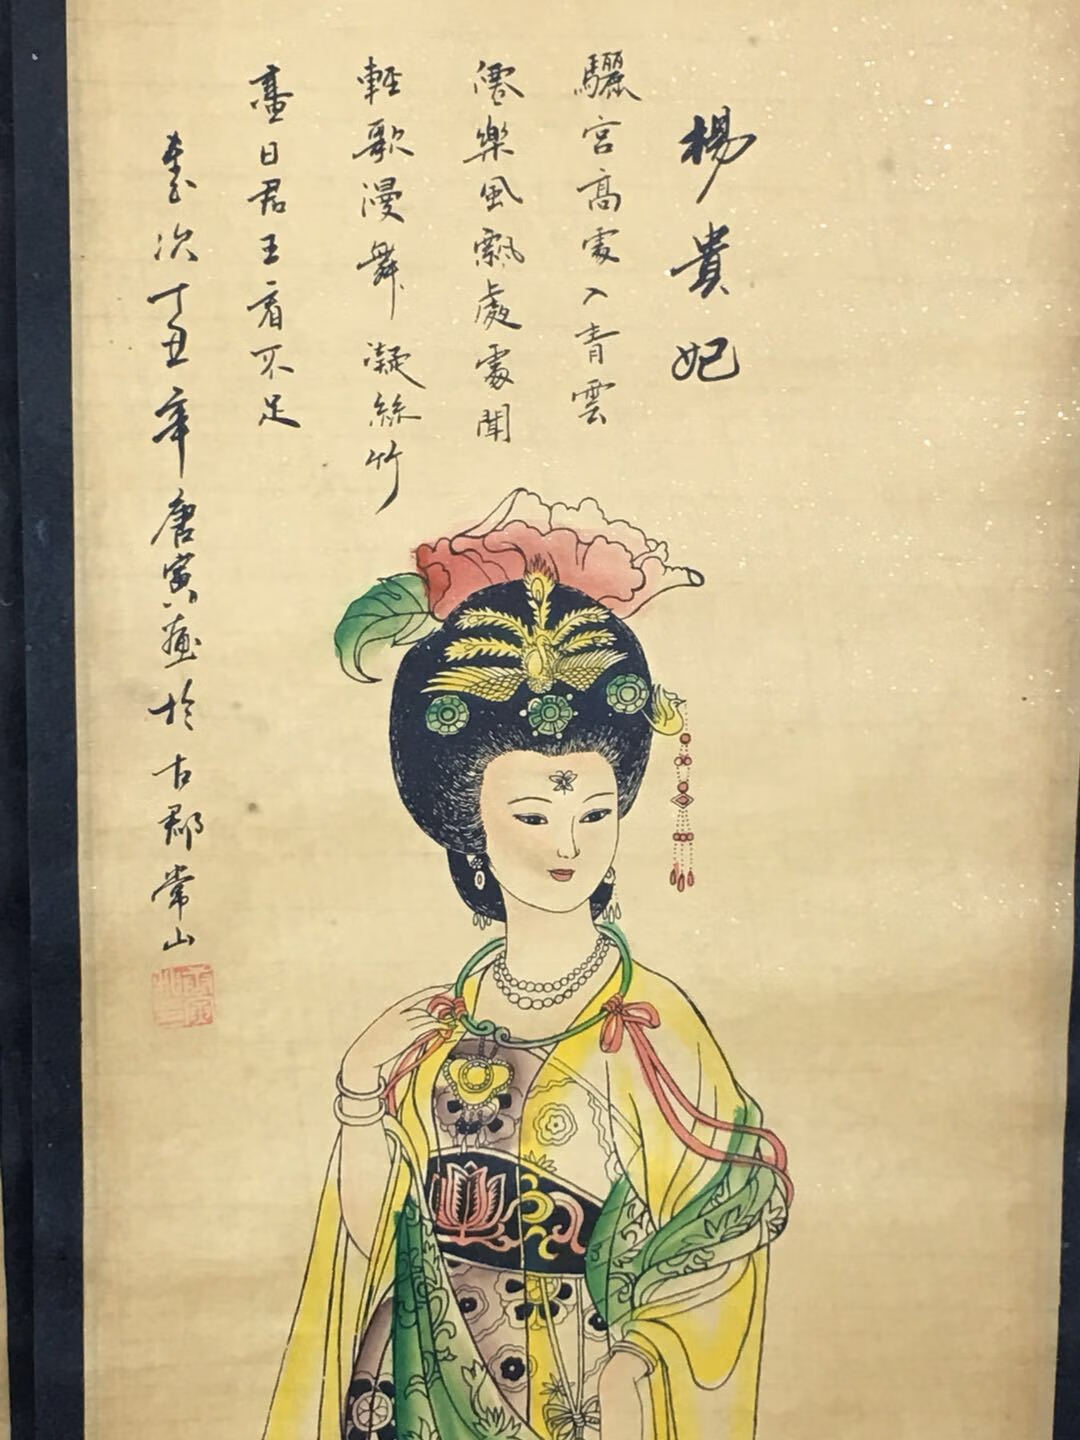 楊貴妃
驪宮高處入青雲
僊樂風飄處處聞
輕歌漫舞凝絲竹
盡日君王看不足
歲次丁丑年唐寅畫於古郡常山